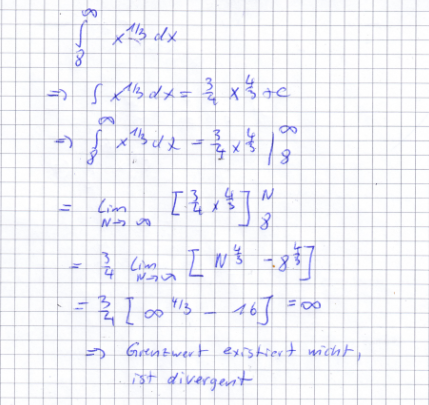 ∫₈^∞ x^{1/3} dx
⇒ ∫ x^{1/3} dx = 3/4 x^{4/3} + C
⇒ ∫₈^∞ x^{1/3} dx = 3/4 x^{4/3} |₈^∞
= lim_{N→∞} [3/4 x^{4/3}]₈^N
= 3/4 lim_{N→∞} [N^{4/3} - 8^{4/3}]
= 3/4 [∞^{4/3} - 16] = ∞
⇒ Grenzwert existiert nicht,
ist divergent